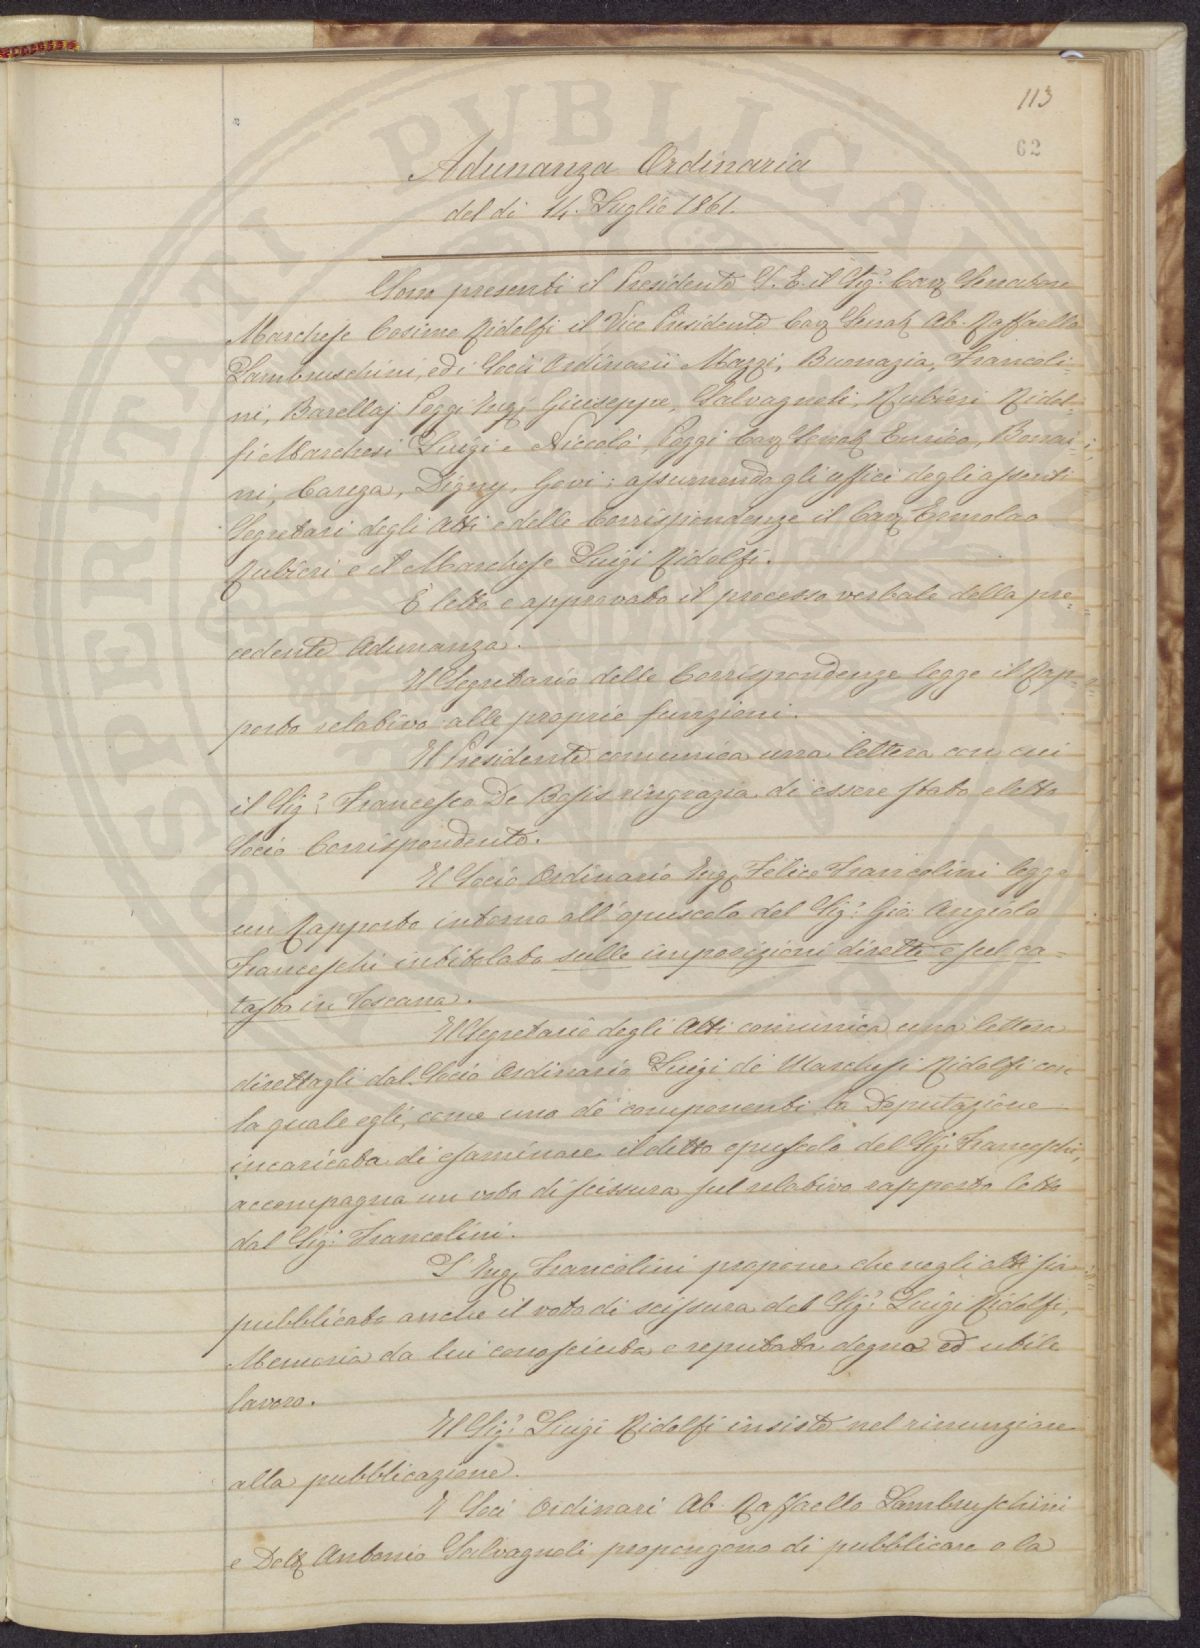 113
62
Adunanza Ordinaria
del dì 14. Luglio 1861.
Sono presenti il Presidente S. E. il Sig.r Cav. Senatore
Marchese Cosimo Ridolfi il Vice Presidente Cav. Senat. Ab. Raffaello
Lambruschini, ed i Socii Ordinarii Mazzi, Buonazia, Francoli=
ni, Barellaj Poggi Ing. Giuseppe, Salvagnoli, Rubieri Ridol=
fi Marchesi Luigi e Niccolò, Poggi Cav. Senat. Enrico, Bonai=
ni, Carega, Digny, Govi: assumendo gli uffici degli assenti
Segretari degli Atti e delle Corrispondenze il Cav. Ermolao
Rubieri e il Marchese Luigi Ridolfi.
È letto e approvato il processo verbale della pre=
cedente Adunanza.
Il Segretario delle Corrispondenze legge il Rap=
porto relativo alle proprie funzioni.
Il Presidente comunica una lettera con cui
il Sig.r Francesco De Bosis ringrazia di essere stato eletto
Socio Corrispondente.
Il Socio Ordinario Ing. Felice Francolini legge
un Rapporto intorno all'opuscolo del Sig.r Gio: Angiolo
Franceschi intitolato sulle imposizioni dirette e sul ca=
tasto in Toscana.
Il Segretario degli Atti comunica una lettera
direttagli dal Socio Ordinario Luigi de' Marchesi Ridolfi con
la quale egli, come uno de' componenti la Deputazione
incaricata di esaminare il detto opuscolo del Sig.r Franceschi,
accompagna un voto di scissura sul relativo rapporto letto
dal Sig.r Francolini.
L'Ing. Francolini propone che negli atti sia
pubblicato anche il voto di scissura del Sig.r Luigi Ridolfi,
Memoria da lui conosciuta e reputata degno ed utile
lavoro.
Il Sig.r Luigi Ridolfi insiste nel rinunziare
alla pubblicazione.
I Soci Ordinari Ab. Raffaello Lambruschini
e Dott. Antonio Salvagnoli propongono di pubblicare o la